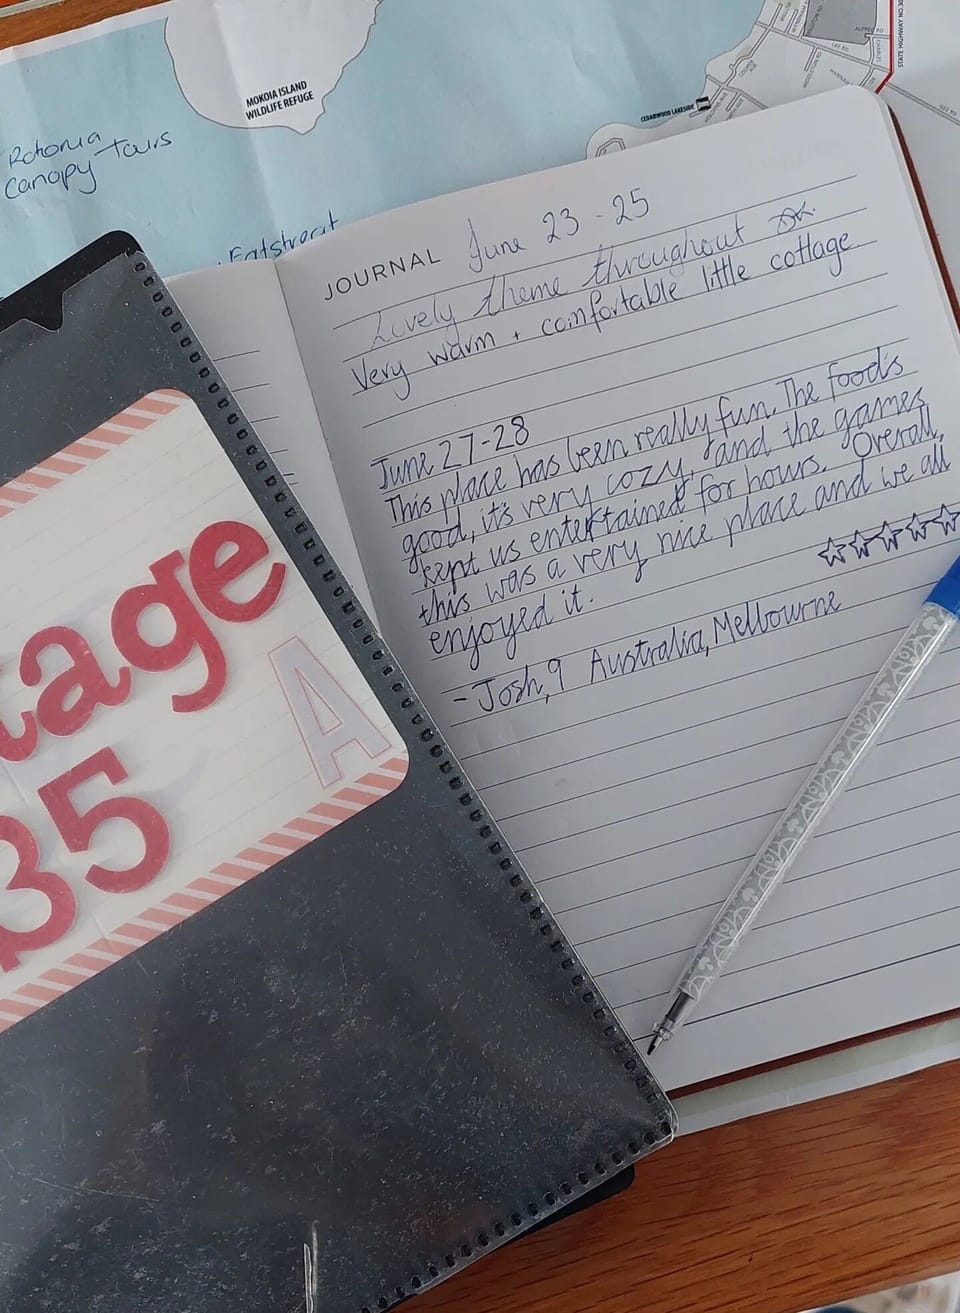 MOKOIA ISLAND
WILDLIFE REFUGE
STATE HIGHWAY NO.30
CEDARWOOD LAKESIDE
Rotorua
Canopy Tours
Eatstreat
JOURNAL June 23 - 25
Lovely theme throughout
Very warm + comfortable little cottage
June 27-28
This place has been really fun. The food's
good, it's very cozy, and the games
kept us entertained for hours. Overall,
this was a very nice place and we all
enjoyed it. ☆☆☆☆☆
- Josh, 9 Australia, Melbourne
tage
35 A